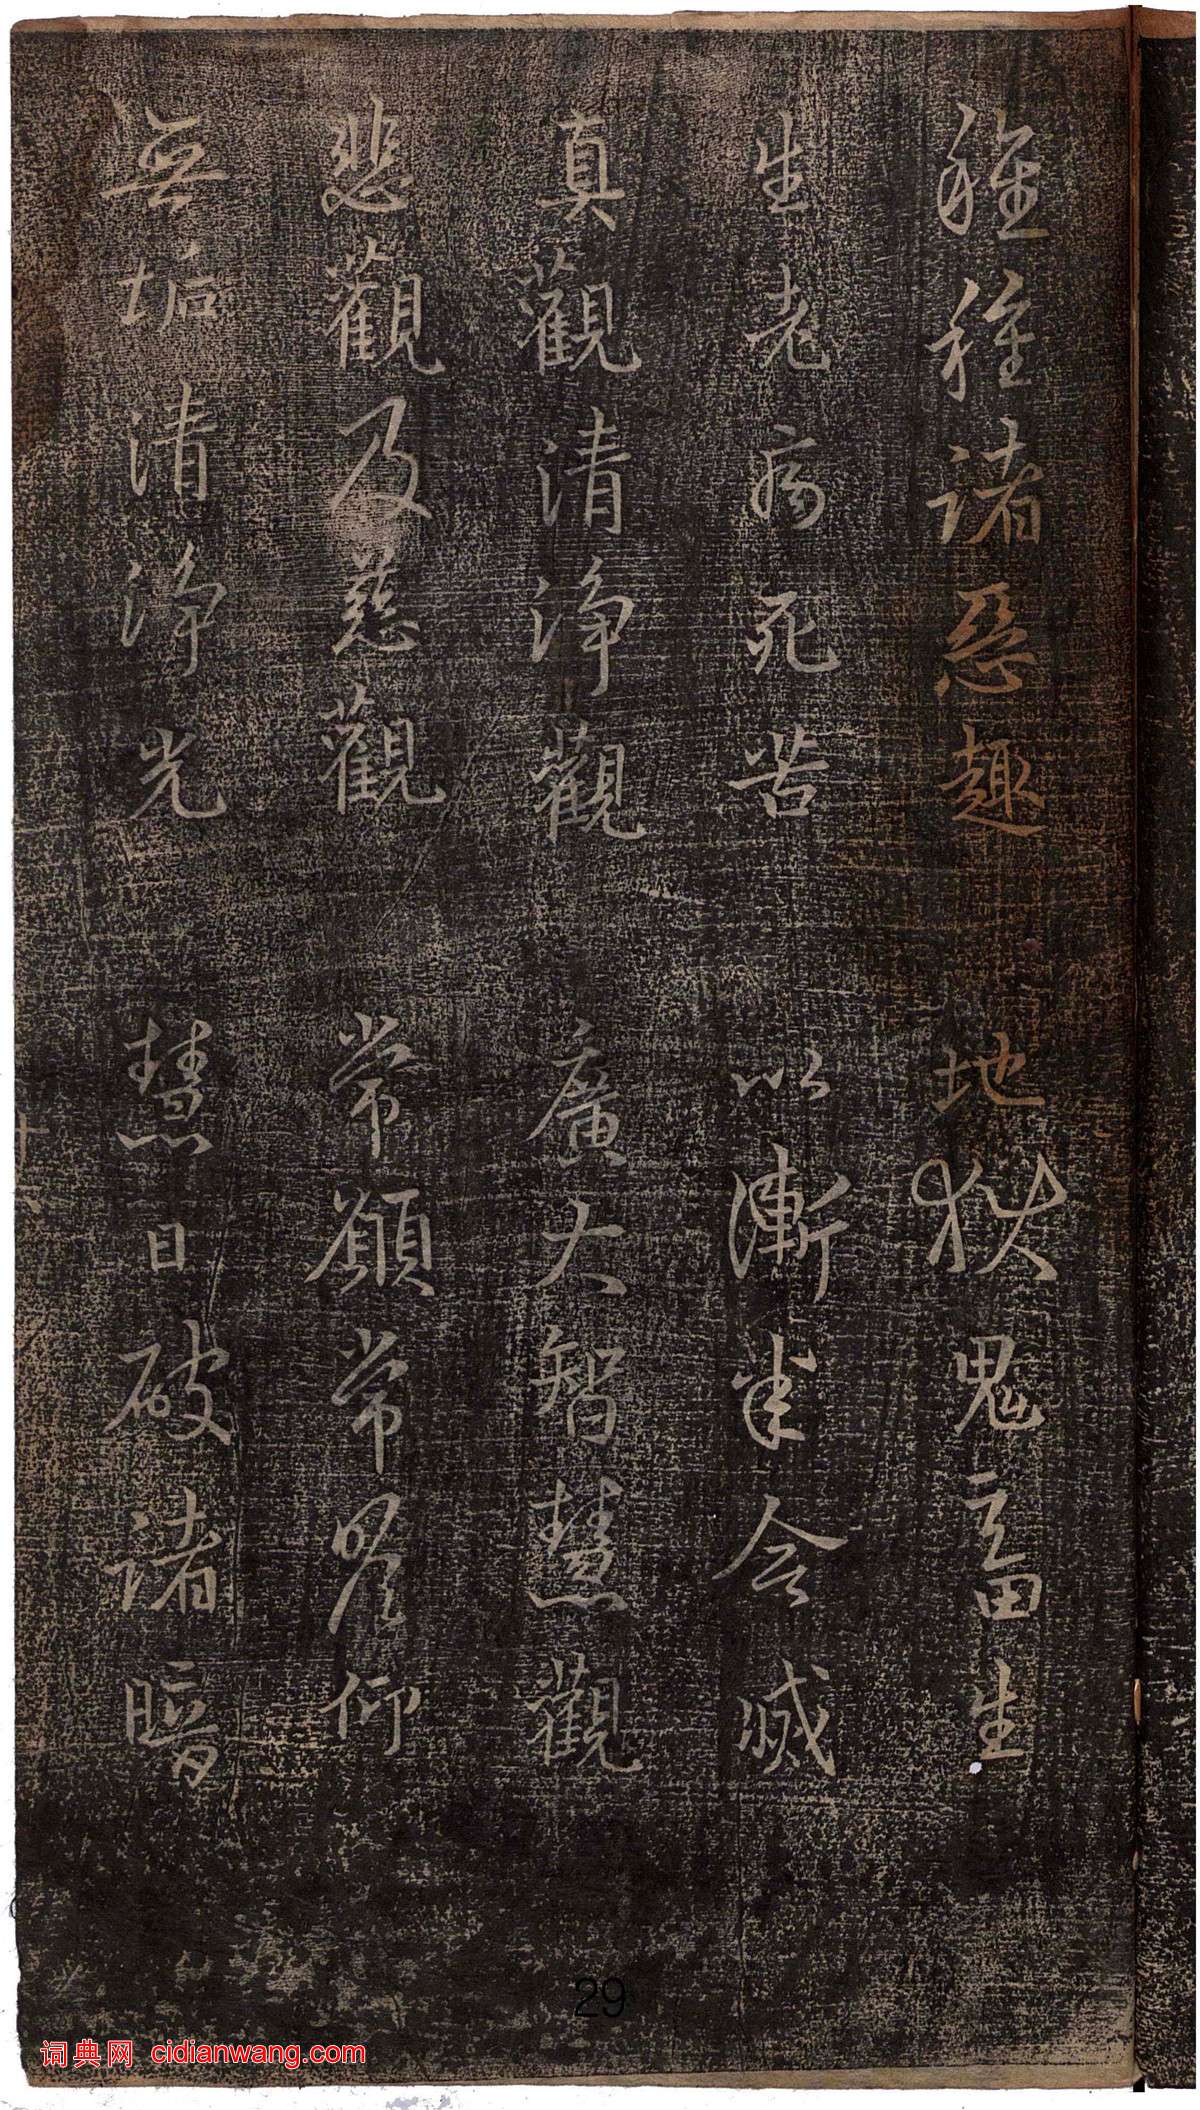 種種諸惡趣 地獄鬼畜生
生老病死苦 以漸悉令滅
真觀清淨觀 廣大智慧觀
悲觀及慈觀 常願常瞻仰
無垢清淨光 慧日破諸暗
十六
29
词典网 cidianwang.com